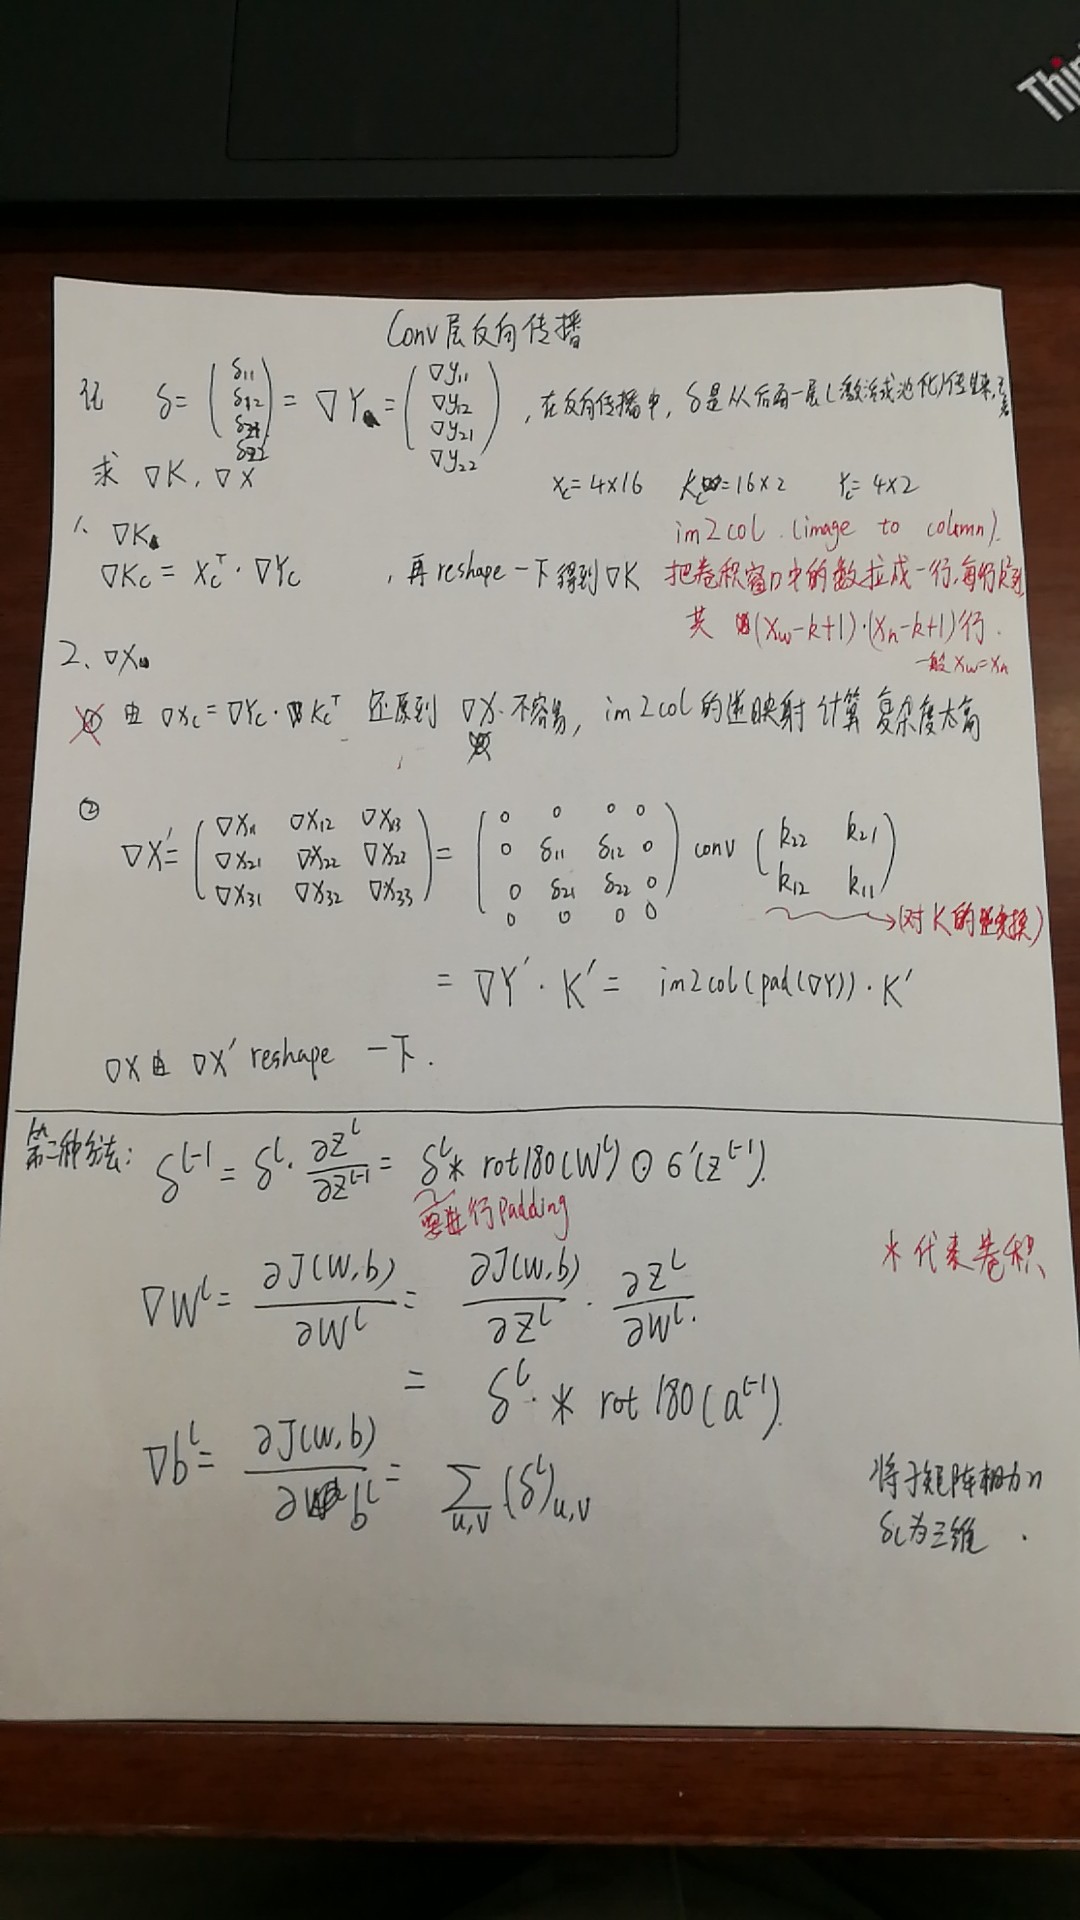 Thin
Conv层反向传播
记 δ = (δ11 δ12 δ21 δ22) = ∇Y = (∇y11 ∇y12 ∇y21 ∇y22), 在反向传播中, δ是从后面一层(激活或池化)传过来,
求 ∇K, ∇X
Xc = 4×16 Kc = 16×2 Yc = 4×2
1、∇K
im2col (image to column).
∇Kc = Xc^T · ∇Yc , 再 reshape 一下得到 ∇K
把卷积窗口中的数拉成一行,每行k²列
共 (Xw-k+1)·(Xh-k+1)行.
一般 Xw=Xh
2、∇X
① 由 ∇Xc = ∇Yc · Kc^T 还原到 ∇X 不容易, im2col的逆映射计算复杂度太高
②
∇X' = (∇X11 ∇X12 ∇X13
∇X21 ∇X22 ∇X23
∇X31 ∇X32 ∇X33) = (0 0 0 0
0 δ11 δ12 0
0 δ21 δ22 0
0 0 0 0) conv (k22 k21
k12 k11)
(对K的变换)
= ∇Y' · K' = im2col(pad(∇Y)) · K'
∇X由 ∇X' reshape 一下.
第二种方法: δ^(l-1) = δ^l · ∂z^l/∂z^(l-1) = δ^l * rot180(W^l) ⊙ σ'(z^(l-1)).
要进行padding
* 代表卷积
∇W^l = ∂J(W,b)/∂W^l = ∂J(W,b)/∂z^l · ∂z^l/∂W^l.
= δ^l * rot180(a^(l-1)).
∇b^l = ∂J(W,b)/∂b^l = Σ_(u,v) (δ^l)_(u,v)
将子矩阵相加
δl为三维.